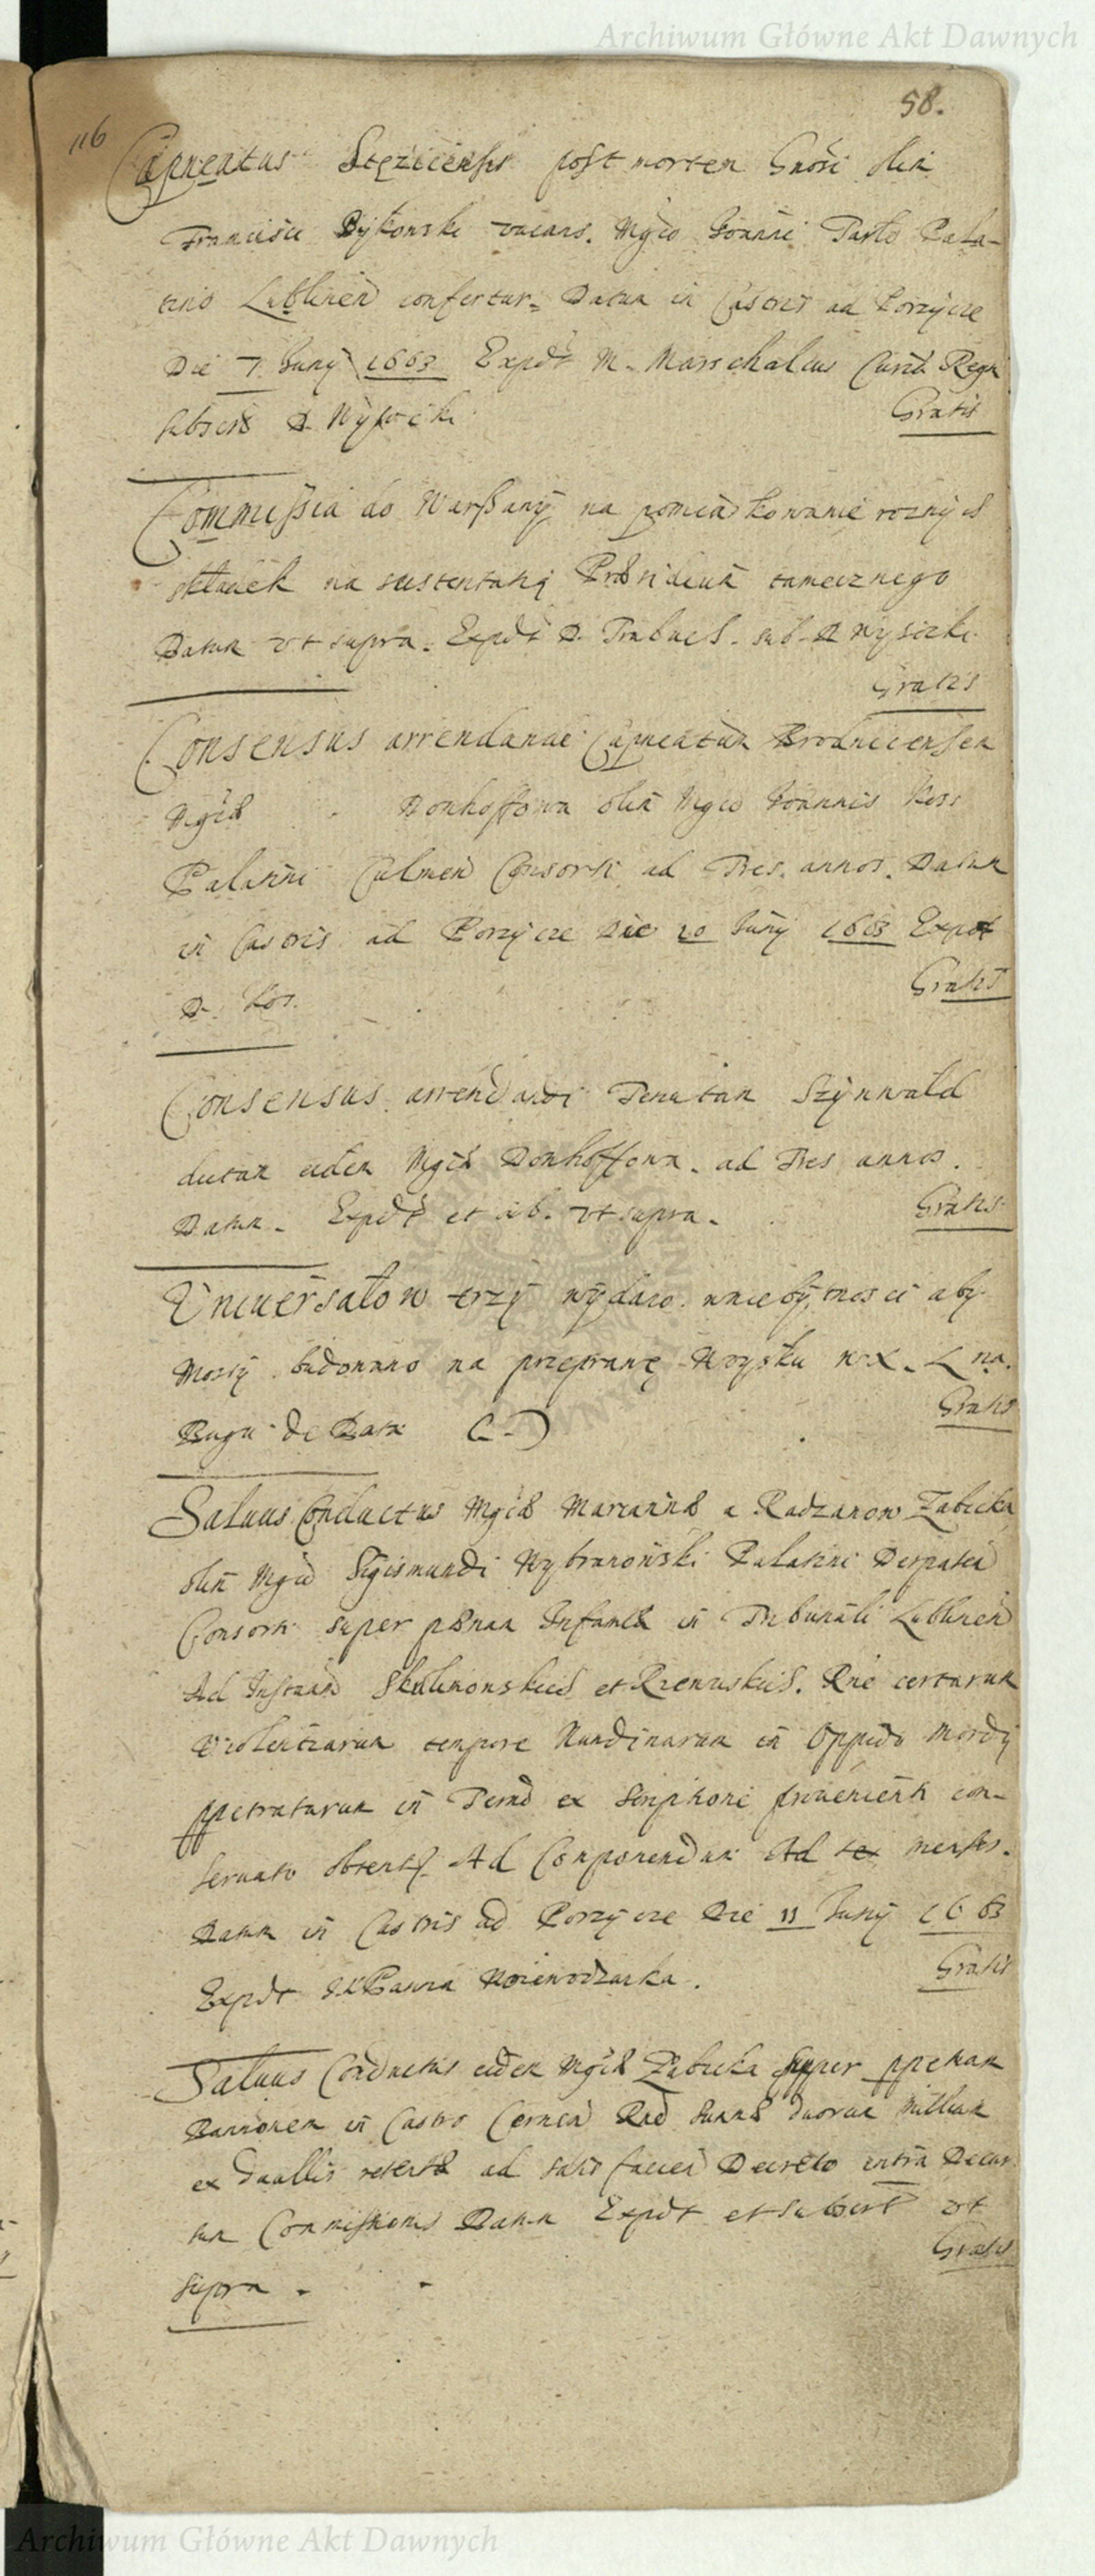 Archiwum Główne Akt Dawnych
58.
116
Capneatus Stęzicensis post mortem Gnosi olim
Francisci Bykowski vacans. Mgco Joanni Tarło Pala-
tino Lublinen confertur. Datum in Castris ad Porzycze
Die 7. Juny 1663 Expdt M. Marschalcus Curiæ Regni
subscrib D. Wysocki
Gratis
Commissia do Warszawy na pomiarkowanie roznych
składek na sustentatią Præsidium tamecznego
Datum vt supra. Expdt D. sub. D Wysocki
Gratis
Consensus arrendandæ Capneatum Brodnicensem
Mgcæ Donhoffowa olim Mgco Joannis Kos
Palatini Culmen Consorti ad Tres annos. Datum
in Castris ad Porzycze Die 10 Juny 1663 Expdt
D. Kos.
Gratis
Consensus arrendandi Tenutam Szynwałd
dictam eidem Mgcæ Donhoffowa. ad Tres annos.
Datum. Expdt et sub. vt supra.
Gratis
Vniuersałow trzy wydano w niebytnosci aby
Mosty budowano na przeprawę Woysku W.X.L na
Bugu de Data (-)
Gratis
Saluus Conductus Mgcæ Mariannæ a Radzanow Zabicka
olim Mgco Sigismundi Wybranowski Palatini Derpaten
Consorti super pænam Infamiæ in Tribunali Lublinen
Ad Instan Skulimonskich et Rzewuskich. Rne certarum
Violentiarum tempore Nundinarum in Oppido Mordy
ppetratarum in Termo ex Scriptione prouenienti con-
seruato obtent. Ad Componendum Ad sex menses.
Datum in Castris ad Porzycze Die 11 Juny 1663
Expdt Woiewodzanka.
Gratis
Saluus Conductus eidem Mgcæ Zabicka super ppetuam
Bannionem in Castro Cernen Rne summæ duorum millium
ex ad satisfacien Decreto intra Decur-
sum Commissionis Datum Expdt et subscrib vt
supra.
Gratis
Archiwum Główne Akt Dawnych